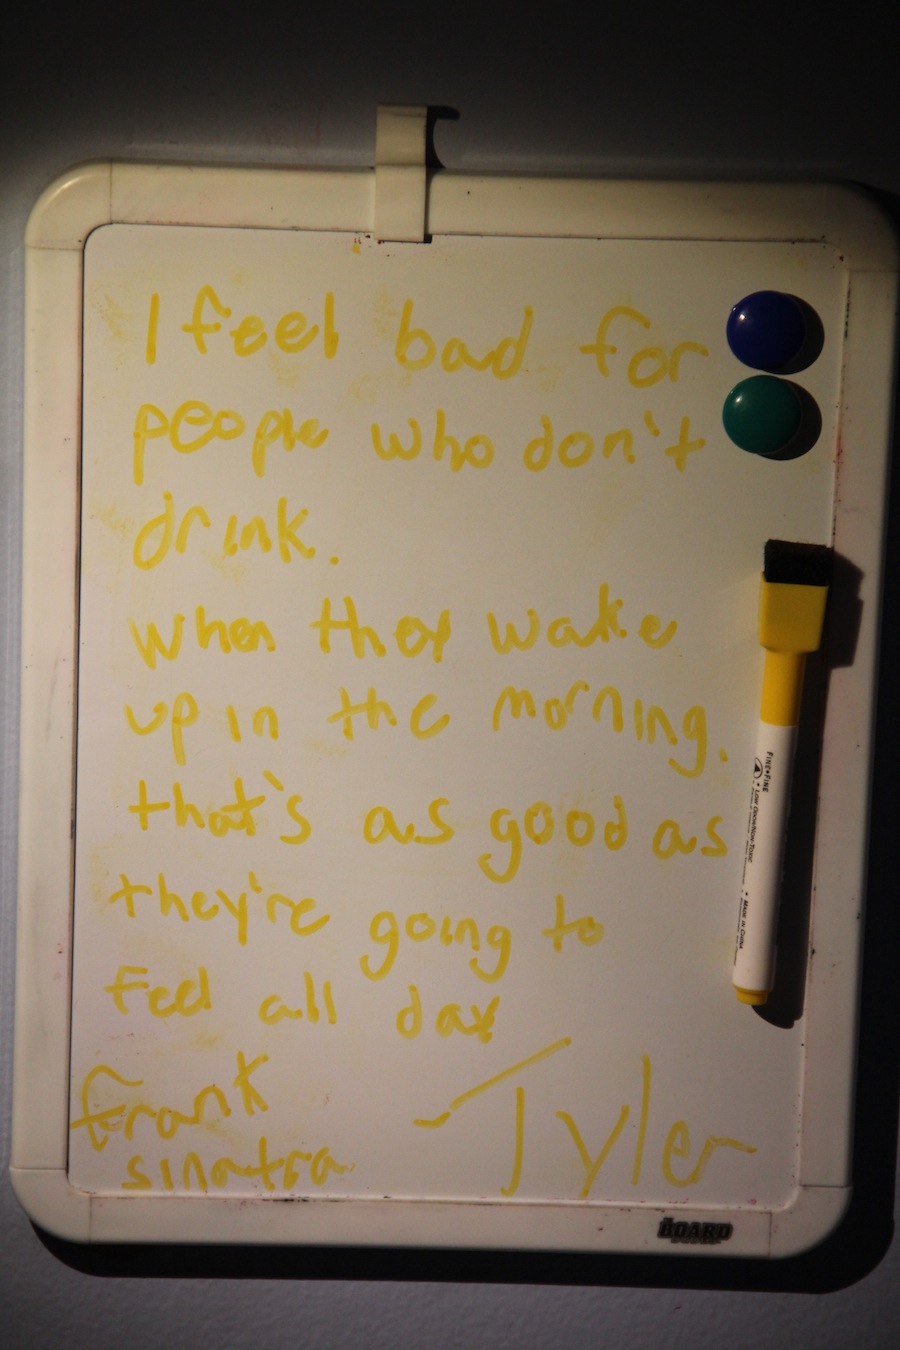 I feel bad for
people who don't
drink.
when they wake
up in the morning.
that's as good as
they're going to
feel all day
frank
sinatra
Tyler
FINE•FINE
LOW ODOR/NON-TOXIC
MADE IN CHINA
BOARD